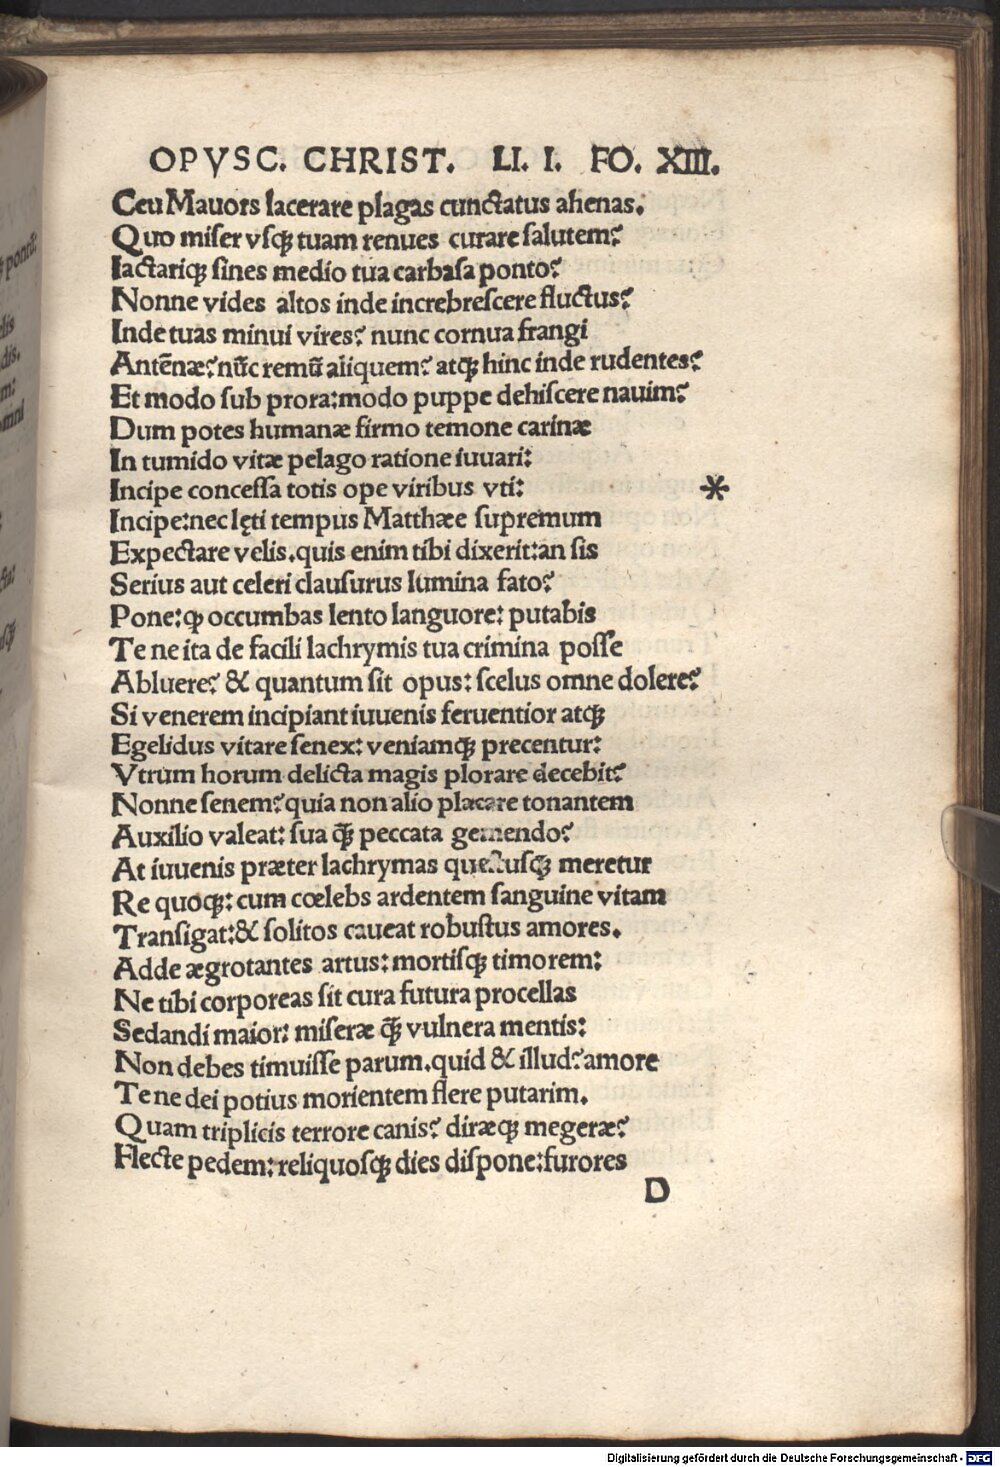 OPVSC. CHRIST. LI. I. FO. XIII.
Ceu Mauors lacerare plagas cunctatus ahenas.
Quo miser vsqꝫ tuam renues curare salutem?
Iactariqꝫ sines medio tua carbasa ponto?
Nonne vides altos inde increbrescere fluctus?
Inde tuas minui vires? nunc cornua frangi
Antēnæ? nūc remū aliquem? atqꝫ hinc inde rudentes?
Et modo sub prora: modo puppe dehiscere nauim?
Dum potes humanæ firmo temone carinæ
In tumido vitæ pelago ratione iuuari:
Incipe concessa totis ope viribus vti: *
Incipe: nec lęti tempus Matthæe supremum
Expectare velis. quis enim tibi dixerit: an sis
Serius aut celeri clausurus lumina fato?
Pone: ꝙ occumbas lento languore: putabis
Te ne ita de facili lachrymis tua crimina posse
Abluere? & quantum sit opus: scelus omne dolere?
Si venerem incipiant iuuenis feruentior atqꝫ
Egelidus vitare senex: veniamqꝫ precentur:
Vtrum horum delicta magis plorare decebit?
Nonne senem? quia non alio placare tonantem
Auxilio valeat: sua q̄ꝫ peccata gemendo?
At iuuenis præter lachrymas questusqꝫ meretur
Re quoqꝫ: cum cœlebs ardentem sanguine vitam
Transigat: & solitos caueat robustus amores.
Adde ægrotantes artus: mortisqꝫ timorem:
Ne tibi corporeas sit cura futura procellas
Sedandi maior: miseræ q̄ꝫ vulnera mentis:
Non debes timuisse parum. quid & illud? amore
Te ne dei potius morientem flere putarim.
Quam triplicis terrore canis? diræqꝫ megeræ?
Flecte pedem: reliquosqꝫ dies dispone: furores
D
Digitalisierung gefördert durch die Deutsche Forschungsgemeinschaft - DFG